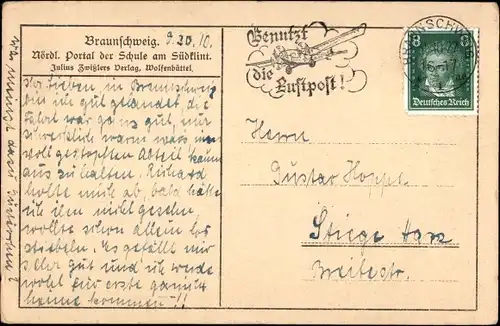 Braunschweig. 9.20.10.
Nördl. Portal der Schule am Südklint.
Julius Zwißlers Verlag, Wolfenbüttel.
Ihr Lieben, in Braunschweig
bin ich gut gelandet, die
Fahrt war ganz gut, nur
schrecklich warm was im
voll gestopften Abteil kaum
auszuhalten. Richard
holte mich ab, bald hätte
ich ihn nicht gesehen,
wollte schon allein los
stiebeln. Es gefällt mir
sehr gut und ich werde
wohl fürs erste garnicht
kommen!!
Benutzt
die
Luftpost!
BRAUNSCHWEIG
8 8
Deutsches Reich
Herrn
Gustav Hoppe
Stiege Harz
Breitestr.